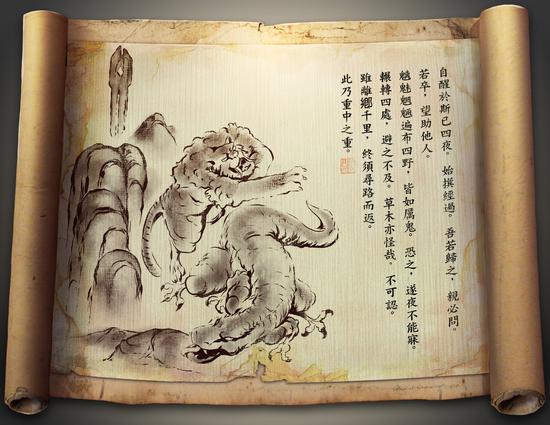 自醒於斯已四夜。始撰經過。吾若歸之,親必問。
若卒,望助他人。
魑魅魍魎遍布四野,皆如厲鬼。恐之,遂夜不能寐。
輾轉四處,避之不及。草木亦怪哉。不可認。
雖離鄉千里,終須尋路而返。
此乃重中之重。